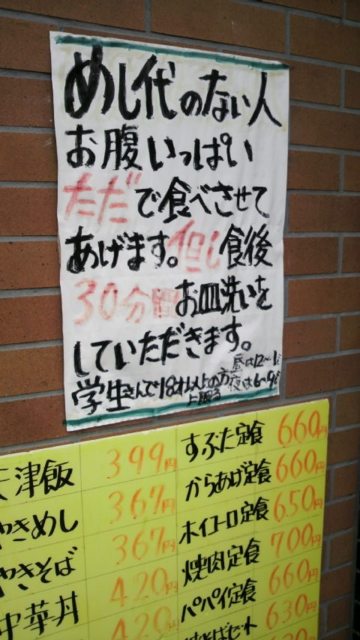 めし代のない人
お腹いっぱい
ただで食べさせて
あげます。但し食後
30分間お皿洗いを
していただきます。
学生さんで18才以上の方
に限る
昼は12~
夜は6~9
天津飯 399円
やきめし 367円
やきそば 367円
中華丼 420円
420円
すぶた定食 660円
からあげ定食 660円
ホイコーロ定食 650円
焼肉定食 700円
パパイ定食 660円
630円